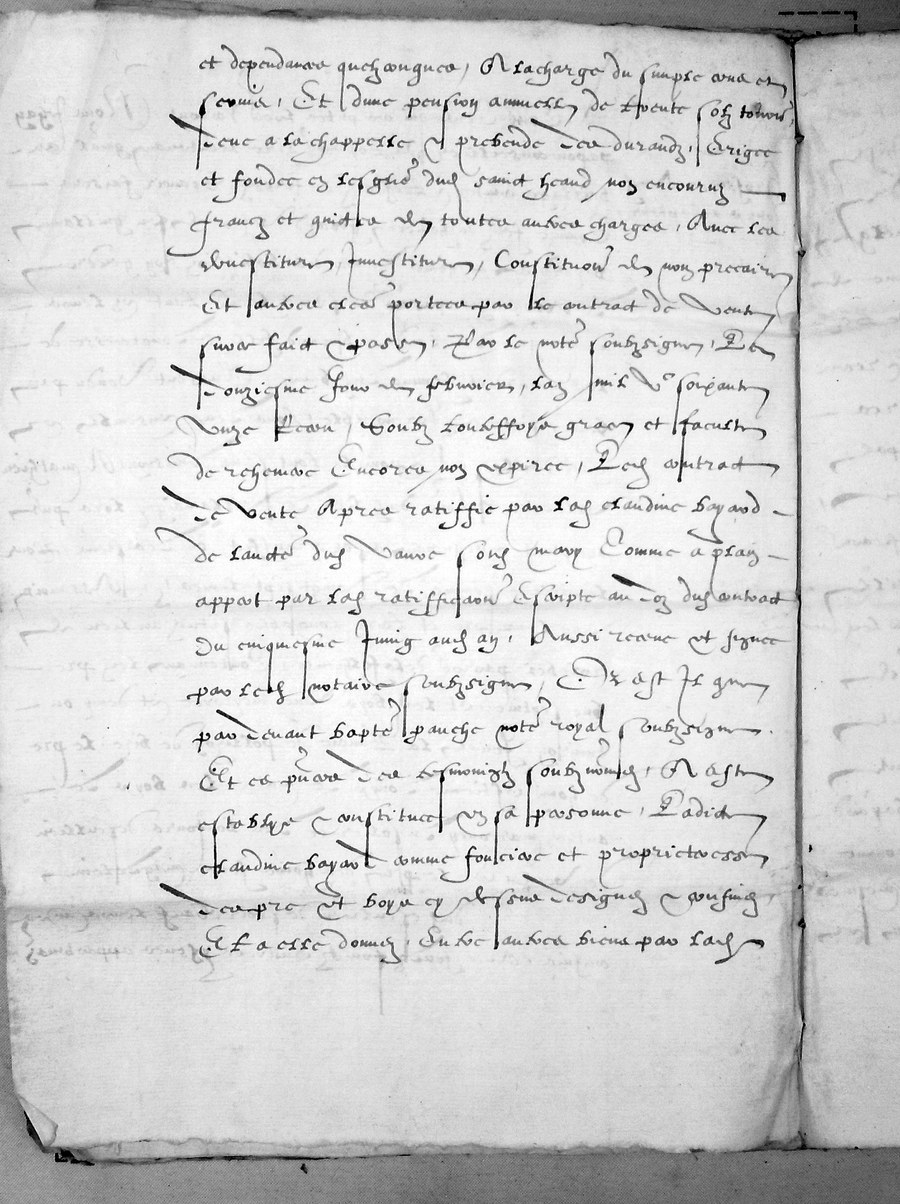 et dependances quelzconques, A la charge du simple cens et
servis, Et dune pension annuelle de trente solz tournois
deue a la chappelle & prebende des durandz, Erigee
et fondee en lesglise dud sainct heand non encouruz
francz et quictes de toutes aultres charges, Avec les
devestiture, Investiture, Constitution de nom precaire
Et aultres clauses portees par le contract de vente
sur ce faict & passe, Par le notere soubzsigne, Le
douziesme Jour de febvrier, lan mil Vc soixante
unze Receu, Soubz toutesfoys grace et faculte
de rehemere Encores non expiree, Led contract
de vente Apres ratiffie par lad claudine bayard
de lauctorite dud Vaure son mary Comme a plain
appert par lad ratiffication escripte au doz dud contract
du cinquiesme Juing aud an, Aussi receue et signee
par led notaire soubzsigne, Or est Il que
par devant baptiste panche notere royal soubzsigne.
Et es presences des tesmoingtz soubznommes, A este
establye & constituee en sa personne, Ladicte
claudine bayard comme fonciere et proprieteresse
des pre et boys cy dessus designes & confines
Et a elle donnes, Entre aultres biens par lad